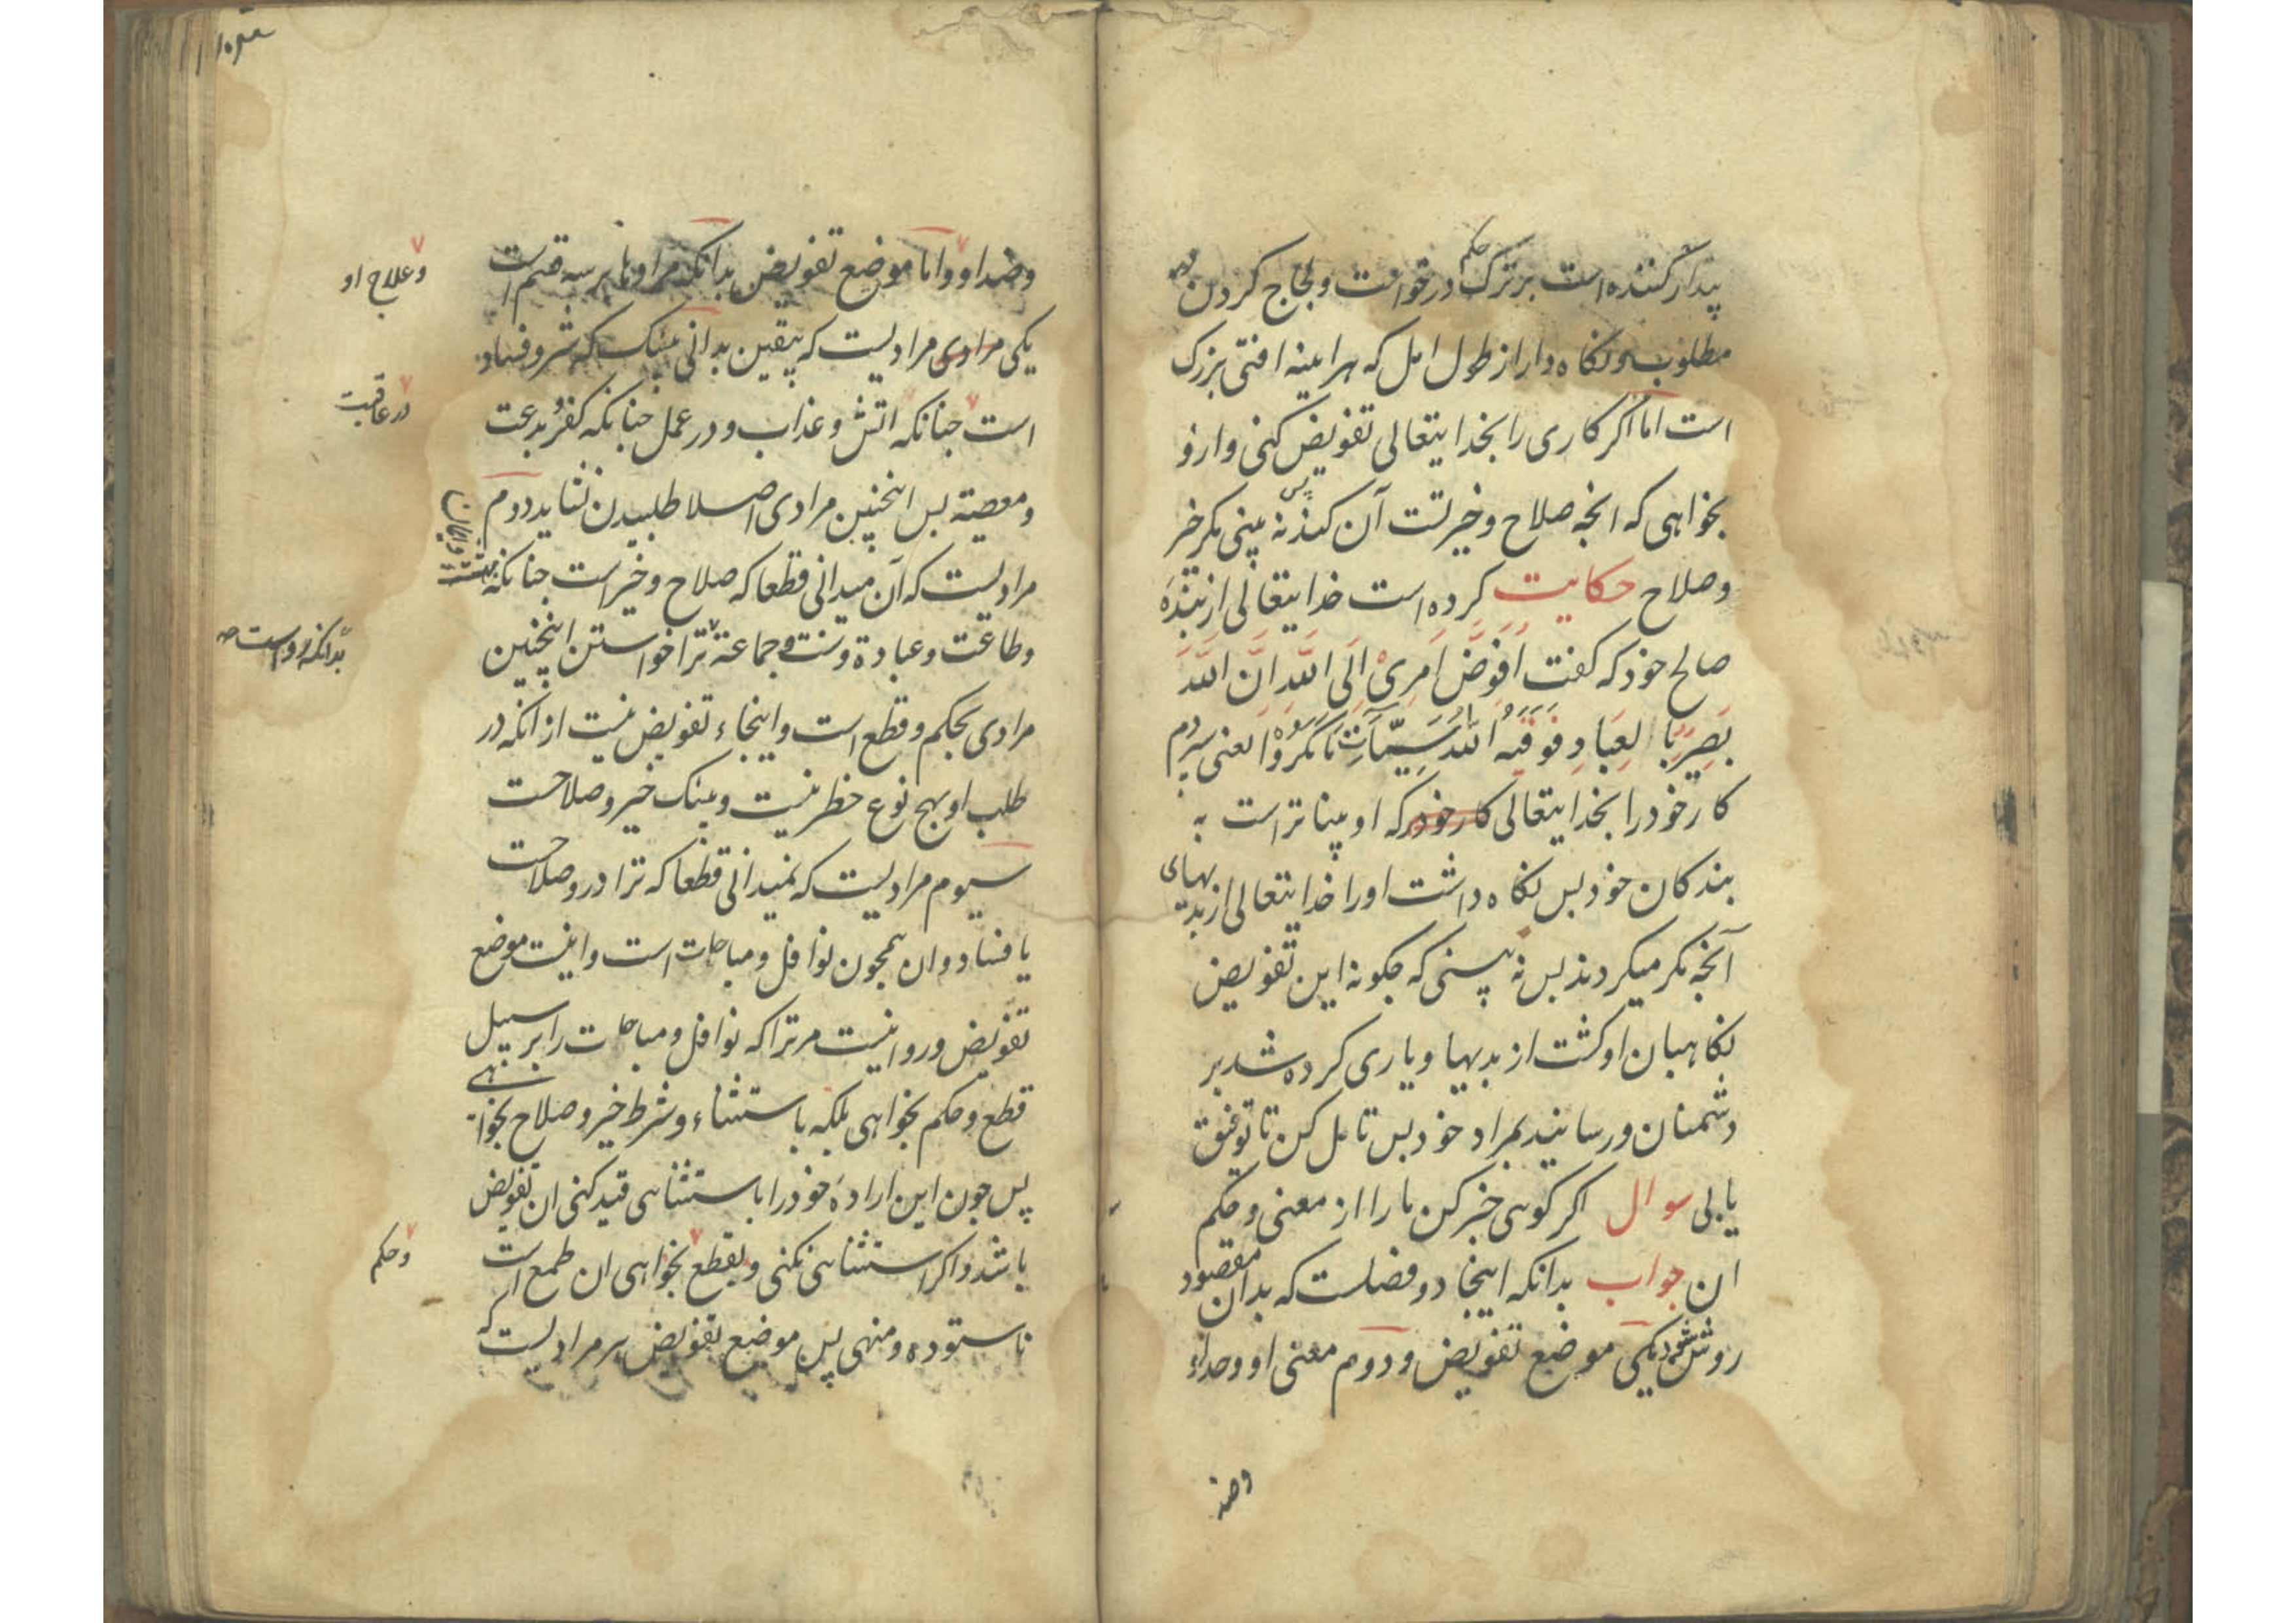 بیدار کننده است بر ترک حکم در خواست و لجاج کردن
مطلوب و نکاه دار از طول امل که هراینه افتی بزرک
است اما اکر کاری را بخدایتعالی تفویض کنی و ازو
بخواهی که انچه صلاح و خیر تست آن کند پس نه بینی مکر خیر
و صلاح حکایت کرده است خدایتعالی از بندهٔ
صالح خود که کفت اُفَوِّضُ اَمْرِیْ اِلَی اللّٰهِ اِنَّ اللّٰهَ
بَصِیْرٌ بِالْعِبَادِ فَوَقٰهُ اللّٰهُ سَیِّئَاتِ مَا مَکَرُوْا یعنی سپردم
کار خود را بخدایتعالی کار خود که او بینا تر است به
بندکان خود بس نکاه داشت او را خدایتعالی از بدیهای
آنچه مکر میکردند بس نه بینی که جکونه این تفویض
نکاهبان او کشت از بدیها و یاری کرده شد بر
دشمنان و رسانید بمراد خود بس تامل کن تا توفیق
یابی سوال اکر کوئی خبر کن ما را از معنی و حکم
ان جواب بدانکه اینجا دو فصلست که بدان مقصود
روشن شود یکی موضع تفویض و دوم معنی او و حد او
وضد
وضد او و اما موضع تفویض بدانکه مرادها بر سه قسم است
و علاج او
یکی مرادی مرادیست که بیقین بدانی بیشک که شر و فساد
است جنانکه اتش و عذاب و در عمل جنانکه کفر و بدعت
در عاقبت
و معصیة بس اینچنین مرادی اصلا طلبیدن نشاید دوم
مرادیست که آن میدانی قطعا که صلاح و خیر است جنانکه بهشت و ایمان
و طاعت و عبادة و سنت و جماعة ترا خواستن اینچنین
مرادی بحکم و قطع است و اینجاء تفویض نیست از انکه در
طلب او بهیج نوع خطر نیست و بیشک خیر و صلاحست
سیوم مرادیست که نمیدانی قطعا که ترا درو صلاحست
یا فساد و ان همجون نوافل و مباحات است و اینست موضع
تفویض و روا نیست مر ترا که نوافل و مباحات را بر سبیل
قطع و حکم بخواهی بلکه باستثناء و شرط خیر و صلاح بخواهی
پس جون این ارادهٔ خود را باستثنائی قید کنی ان تفویض
باشد و اکر استثنائی نکنی و بقطع بخواهی ان طمع است
و حکم
ناستوده و منهی پس موضع تفویض هر مرادیست که